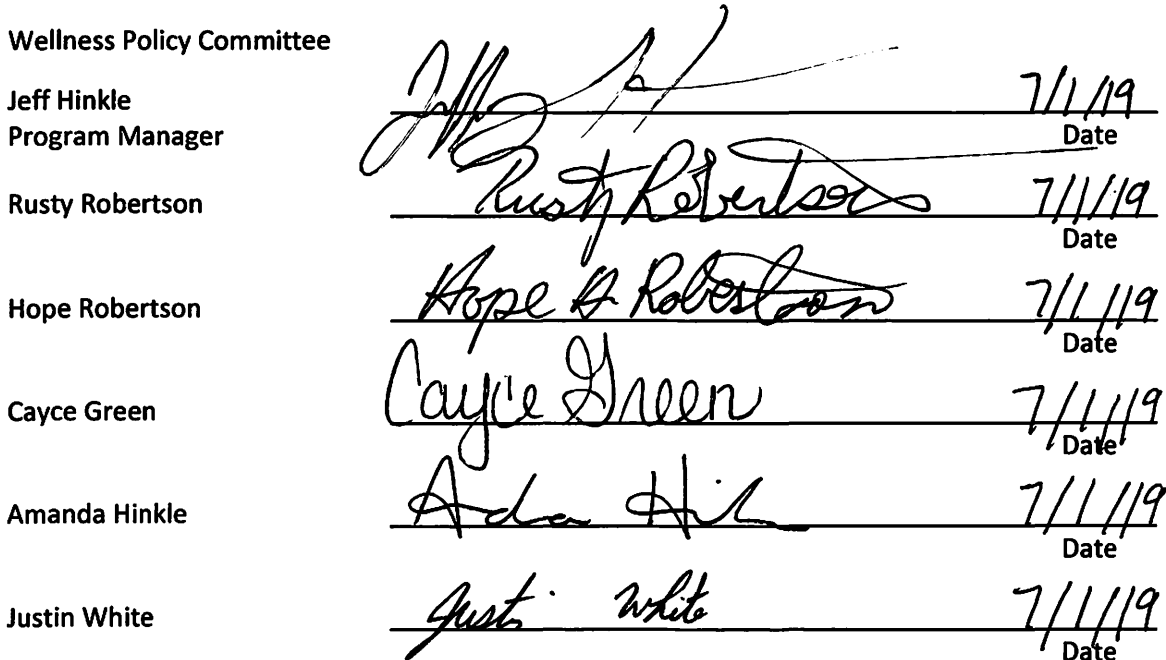 Wellness Policy Committee
Jeff Hinkle 7/1/19
Program Manager Date
Rusty Robertson Rusty Robertson 7/1/19
Date
Hope Robertson Hope A Robertson 7/1/19
Date
Cayce Green Cayce Green 7/1/19
Date
Amanda Hinkle 7/1/19
Date
Justin White Justin White 7/1/19
Date